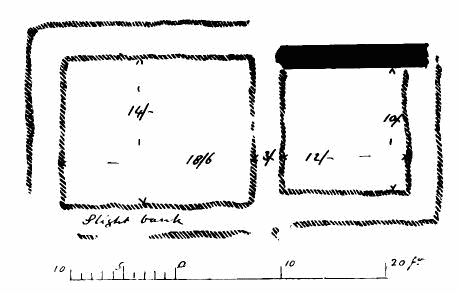 14/-
10/-
18/6
3/-
12/-
Slight bank
10 5 0 10 20 ft